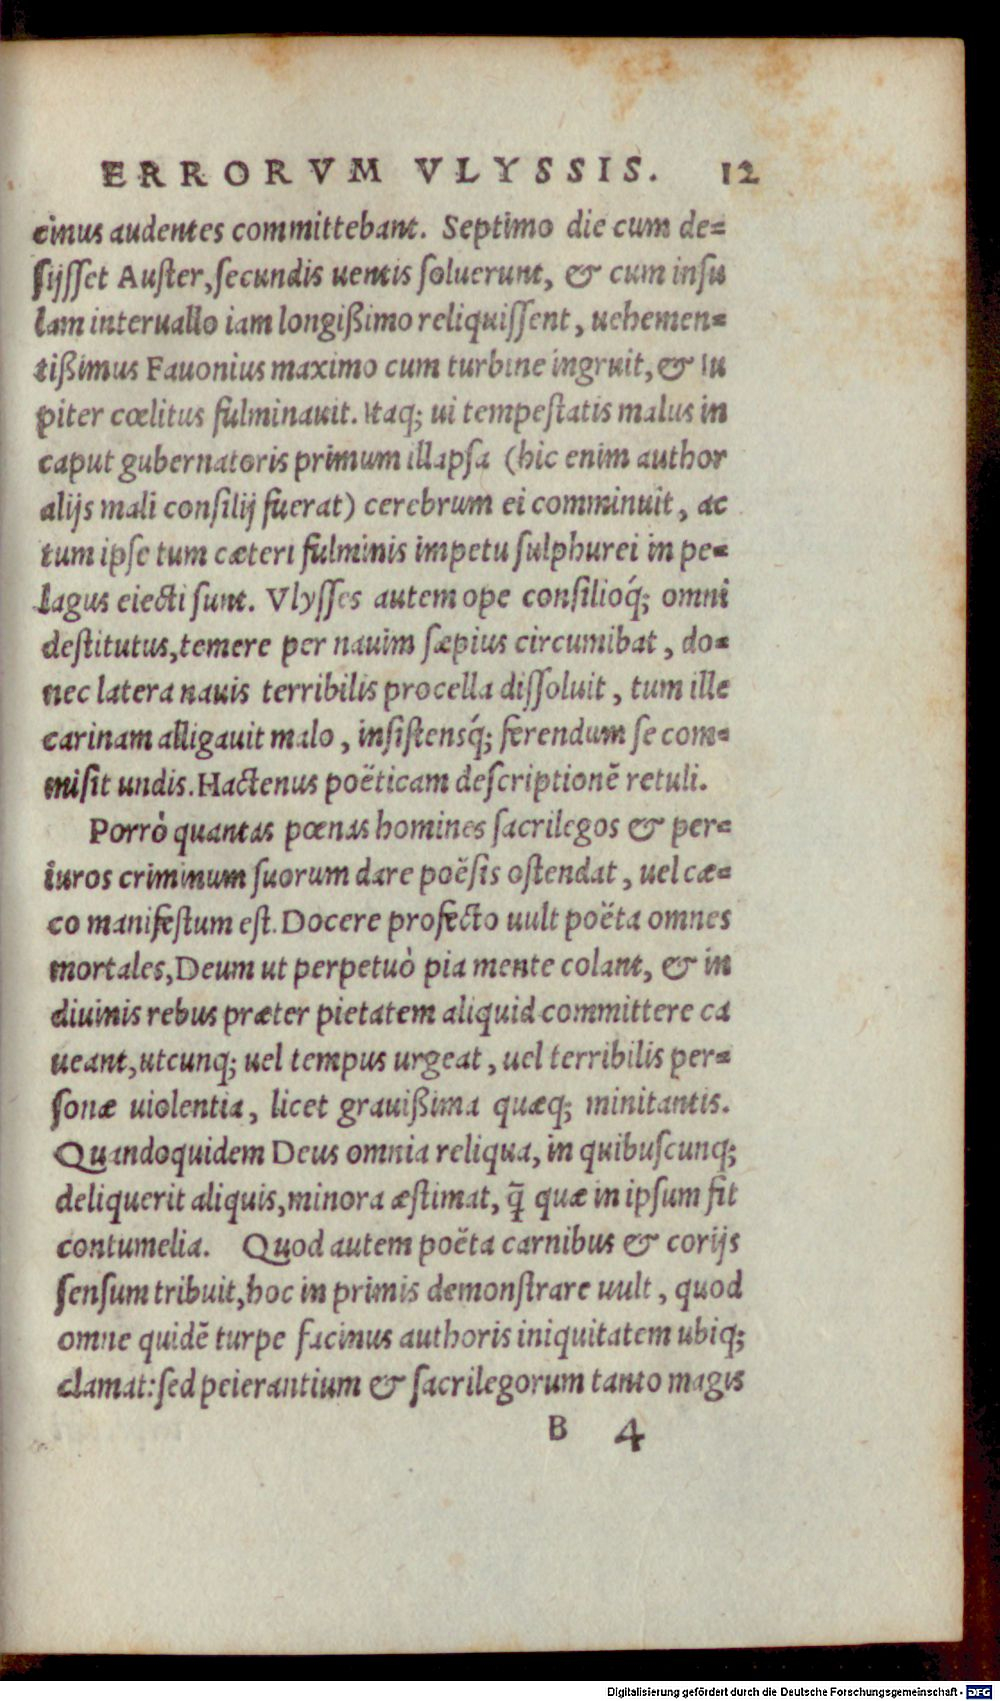 ERRORVM VLYSSIS. 12
cinus audentes committebant. Septimo die cum de=
sijsset Auster, secundis uentis soluerunt, & cum insu
lam interuallo iam longißimo reliquissent, uehemen=
tißimus Fauonius maximo cum turbine ingruit, & Iu
piter cœlitus fulminauit. Itaq; ui tempestatis malus in
caput gubernatoris primum illapsa (hic enim author
alijs mali consilij fuerat) cerebrum ei comminuit, ac
tum ipse tum cæteri fulminis impetu sulphurei in pe=
lagus eiecti sunt. Vlysses autem ope consilioq́; omni
destitutus, temere per nauim sæpius circumibat, do=
nec latera nauis terribilis procella dissoluit, tum ille
carinam alligauit malo, insistensq́; ferendum se com=
misit undis. Hactenus poëticam descriptionē retuli.
Porrò quantas pœnas homines sacrilegos & per=
iuros criminum suorum dare poësis ostendat, uel cæ=
co manifestum est. Docere profecto uult poëta omnes
mortales, Deum ut perpetuò pia mente colant, & in
diuinis rebus præter pietatem aliquid committere ca
ueant, utcunq; uel tempus urgeat, uel terribilis per=
sonæ uiolentia, licet grauißima quæq; minitantis.
Quandoquidem Deus omnia reliqua, in quibuscunq;
deliquerit aliquis, minora æstimat, q̄ quæ in ipsum fit
contumelia. Quod autem poëta carnibus & corijs
sensum tribuit, hoc in primis demonstrare uult, quod
omne quidē turpe facinus authoris iniquitatem ubiq;
clamat: sed peierantium & sacrilegorum tanto magis
B 4
Digitalisierung gefördert durch die Deutsche Forschungsgemeinschaft - DFG